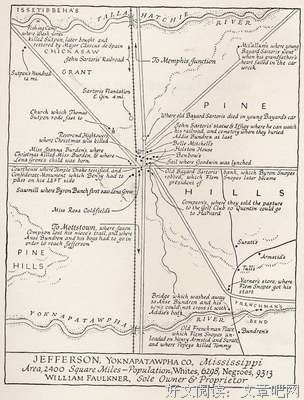 ISSETIBBEHA'S
TALLAHATCHIE RIVER
Fishing Camp
where Wash Jones
killed Sutpen, later bought and
restored by Major Cassius de Spain
CHICKASAW
GRANT
McCallum's, where young
Bayard Sartoris went
when his grandfather's
heart failed in the car
wreck.
John Sartoris' Railroad
Sutpen's Hundred
12 mi.
To Memphis Junction
Sartoris Plantation
& Gin. 4 mi.
PINE
Church which Thomas
Sutpen rode fast to
Where old Bayard Sartoris died in young Bayard's car
John Sartoris' statue & effigy where he can watch
his railroad, and cemetery where they buried
Addie Bundren at last
Reverend Hightower's
where Christmas was killed
Belle Mitchell's
Holston House
Benbow's
Miss Joanna Burden's, where
Christmas killed Miss Burden, & where
Lena Grove's child was born.
Jail where Goodwin was lynched
Courthouse where Temple Drake testified, and
Confederate Monument which Benjy had to
pass on his LEFT side
Old Bayard Sartoris' bank, which Byron Snopes
robbed, which Flem Snopes later became
president of
HILLS
Sawmill where Byron Bunch first saw Lena Grove
Compson's, where they sold the pasture
to the Golf Club so Quentin could go
to Harvard
Miss Rosa Coldfield's
Suratt's
To Mottstown, where Jason
Compson lost his niece's trail, and where
Anse Bundren and his boys had to go in
order to reach Jefferson
Armstid's
PINE
HILLS
Varner's store, where
Flem Snopes got his
start
Bridge which washed
away so Anse Bundren and his
sons could not cross it with
Addie's body
FRENCHMAN'S
BEND
Bundren's
YOKNAPATAWPHA RIVER
Old Frenchman Place
which Flem Snopes un-
loaded on Henry Armstid and Suratt,
and where Popeye killed Tommy
JEFFERSON, YOKNAPATAWPHA CO., Mississippi
Area, 2400 Square Miles—Population, Whites, 6298; Negroes, 9313
WILLIAM FAULKNER, Sole Owner & Proprietor
好文阅读：文章吧网